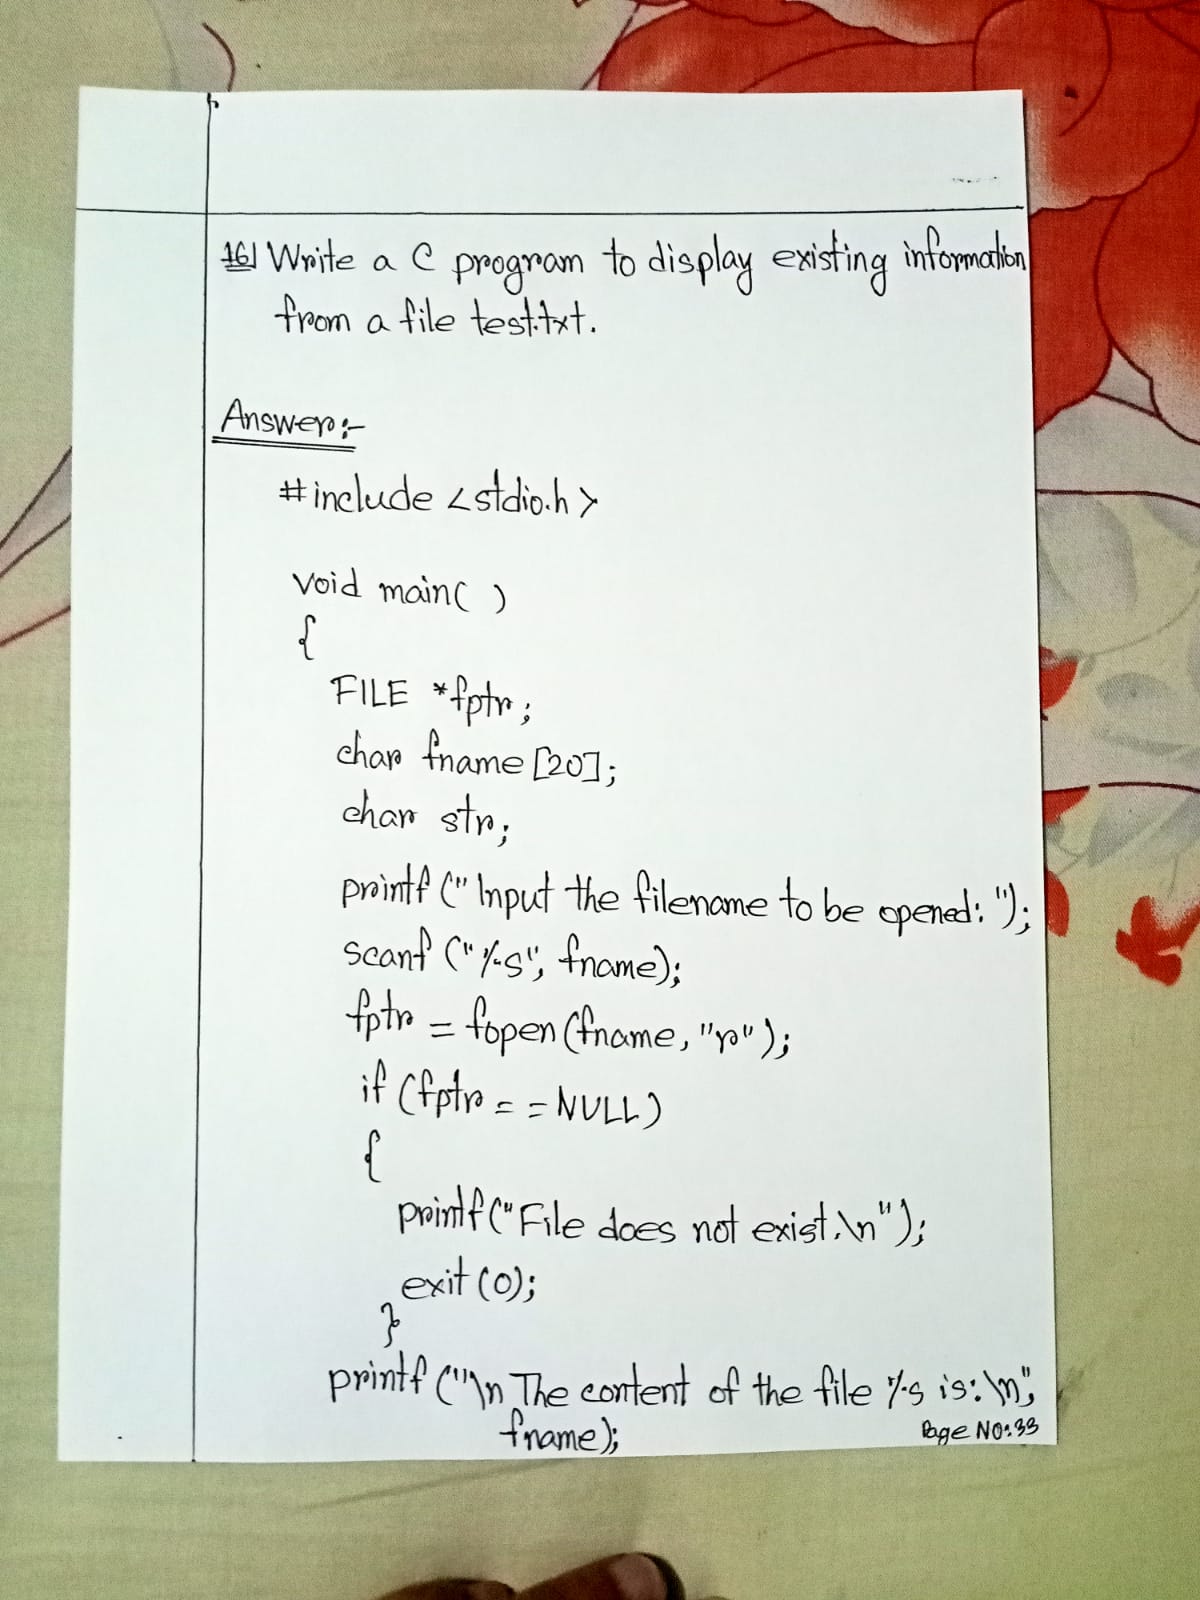 16) Write a C program to display existing information
from a file test.txt.
Answer:-
#include <stdio.h>
void main( )
{
FILE *fptr;
char fname [20];
char str;
printf (" Input the filename to be opened: ");
scanf ("%s", fname);
fptr = fopen (fname, "r");
if (fptr = = NULL)
{
printf (" File does not exist.\n");
exit (0);
}
printf ("\n The content of the file %s is: \n",
fname);
Page NO: 33